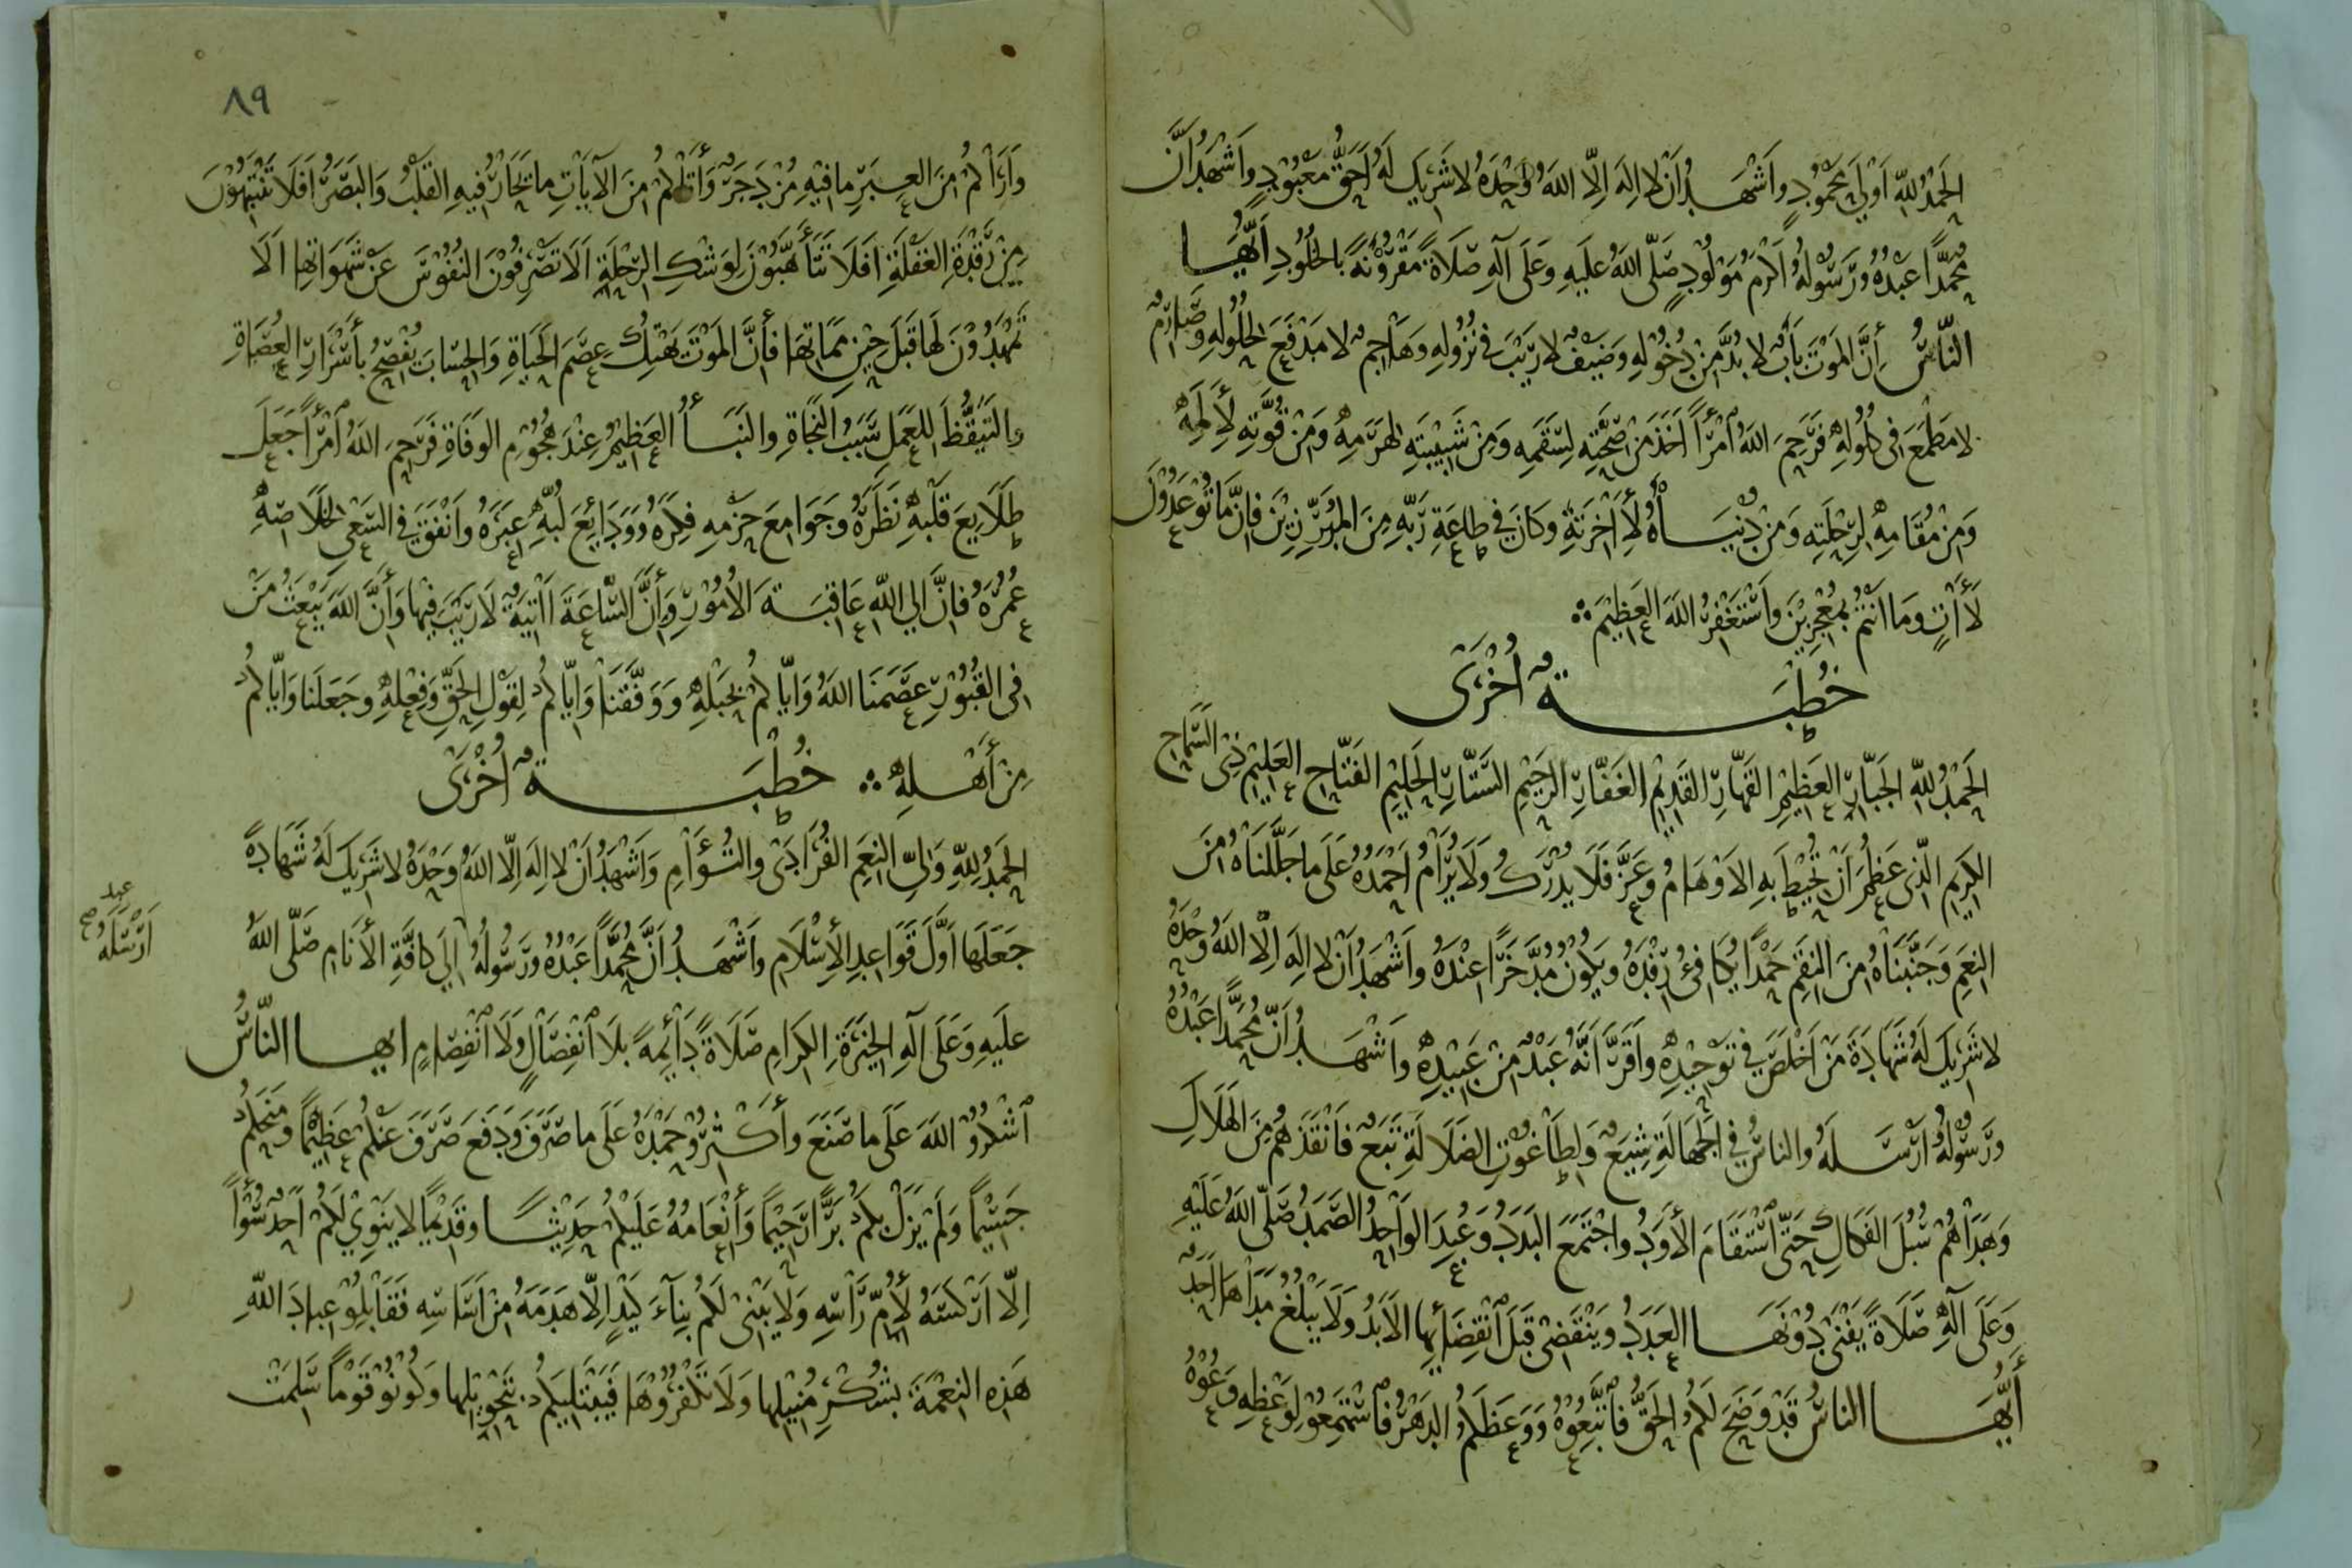 الحمد لله أولى محمود وأشهد أن لا إله إلا الله وحده لا شريك له أحق معبود وأشهد أن
محمدا عبده ورسوله أكرم مولود صلى الله عليه وعلى آله صلاة مقرونة بالخلود أيها
الناس إن الموت باب لا بد من دخوله وضيف لا ريب في نزوله وهاجم لا مدفع لحلوله وصارم
لا مطمع في كلوله فرحم الله امرأ أخذ من صحته لسقمه ومن شبيبته لهرمه ومن قوته لألمه
ومن مقامه لرحلته ومن دنياه لأخرته وكان في طاعة ربه من المبرزين فإن ما توعدون
لأت وما أنتم بمعجزين وأستغفر الله العظيم
خطبة أخرى
الحمد لله الجبار العظيم القهار القديم الغفار الرحيم الستار الحليم الفتاح العليم ذي السماح
الكريم الذي عظم أن تحيط به الاوهام وعز فلا يدرك ولا يرام أحمده على ما جللناه من
النعم وجنبناه من النقم حمدا يكافئ رفده ويكون مدخرا عنده وأشهد أن لا إله إلا الله وحده
لا شريك له شهادة من أخلص في توحيده وأقر أنه عبد من عبيده وأشهد أن محمدا عبده
ورسوله أرسله والناس في الجهالة شيع ولطاغوت الضلالة تبع فانقذهم من الهلاك
وهداهم سبل الفكاك حتى استقام الأود واجتمع البدد وعبد الواحد الصمد صلى الله عليه
وعلى آله صلاة يفنى دونها العدد وينقضي قبل انقضائها الأبد ولا يبلغ مداها أحد
أيها الناس قد وضح لكم الحق فاتبعوه ووعظكم الدهر فاستمعوا لوعظه وعوه
٨٩
وأراكم من العبر ما فيه مزدجر وأتاكم من الآيات ما تحار فيه القلب والبصر أفلا تنتبهون
من رقدة الغفلة أفلا تتأهبون لوشك الرحلة ألا تصرفون النفوس عن شهواتها ألا
تمهدون لها قبل حين مماتها فأن الموت يهتك عصم الحياة والحساب يفصح بأسرار العصاة
والتيقظ للعمل سبب النجاة والنبأ العظيم عند هجوم الوفاة فرحم الله امرأ جعل
طلايع قلبه نظره وجوامع حزمه فكره وودايع لبه عبره وانفق في السعي لخلاصه
عمره فان إلي الله عاقبة الامور وأن الساعة أتية لا ريب فيها وأن الله يبعث من
في القبور عصمنا الله وإياكم بحبله ووفقنا وإياكم لقول الحق وفعله وجعلنا وإياكم
من أهله خطبة أخرى
الحمد لله ولي النعم الفرادى والتؤام وأشهد أن لا إله إلا الله وحده لا شريك له شهادة
جعلها أول قواعد الأسلام وأشهد أن محمدا عبده ورسوله إلي كافة الأنام صلى الله
أرسله صح
عليه وعلى آله الخيرة الكرام صلاة دائمة بلا انفصال ولا انفصام ايها الناس
اشكروا الله على ما صنع وأكثروا حمده على ما صرف ودفع صرف عنكم عظيما ومنحكم
جسيما ولم يزل بكم برا رحيما وأنعامه عليكم حديثا وقديما لا ينوي لكم أحد سؤا
إلا اركسه لأم رأسه ولا يبني لكم بناء كيد إلا هدمه من أساسه فقابلوا عباد الله
هذه النعمة بشكر منيلها ولا تكفروها فيبتليكم بتحويلها وكونوا قوما سلمت